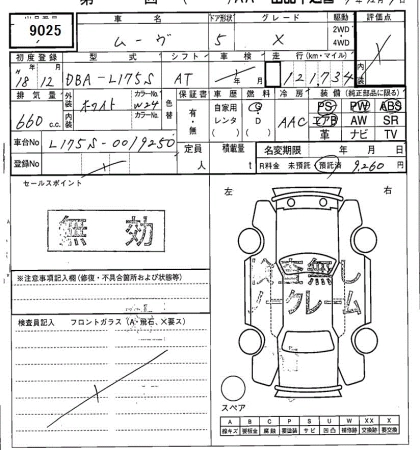 出品番号 9025
車名 ムーヴ
ドア形状 5
グレード X
駆動 2WD 4WD
評価点
初度登録 18年 12月
型式 DBA-L175S
シフト AT
車検 年 月
走行(km・マイル) 121,734
内装
排気量 660 c.c.
外装 ホワイト
内装
カラーNo. W24
カラーNo.
色替
保証書 有・無
車歴 自家用 レンタ
燃料 G D
冷房 AAC
装備(純正部品に限る)
PS PW ABS
エアB AW SR
革 ナビ TV
車台No L175S-0019250
定員 人
積載量 t
名変期限 年 月 日
登録No
R料金 未預託 預託済 9,260円
セールスポイント
無効
左 右
検査無し
ノークレーム
※注意事項記入欄(修復・不具合箇所および状態等)
検査員記入 フロントガラス(A・飛石、X要ス)
スペア
A B C P S U W X XX
線キズ 要板金 腐蝕 要塗装 サビ 凹凸 補修跡 交換跡 要交換